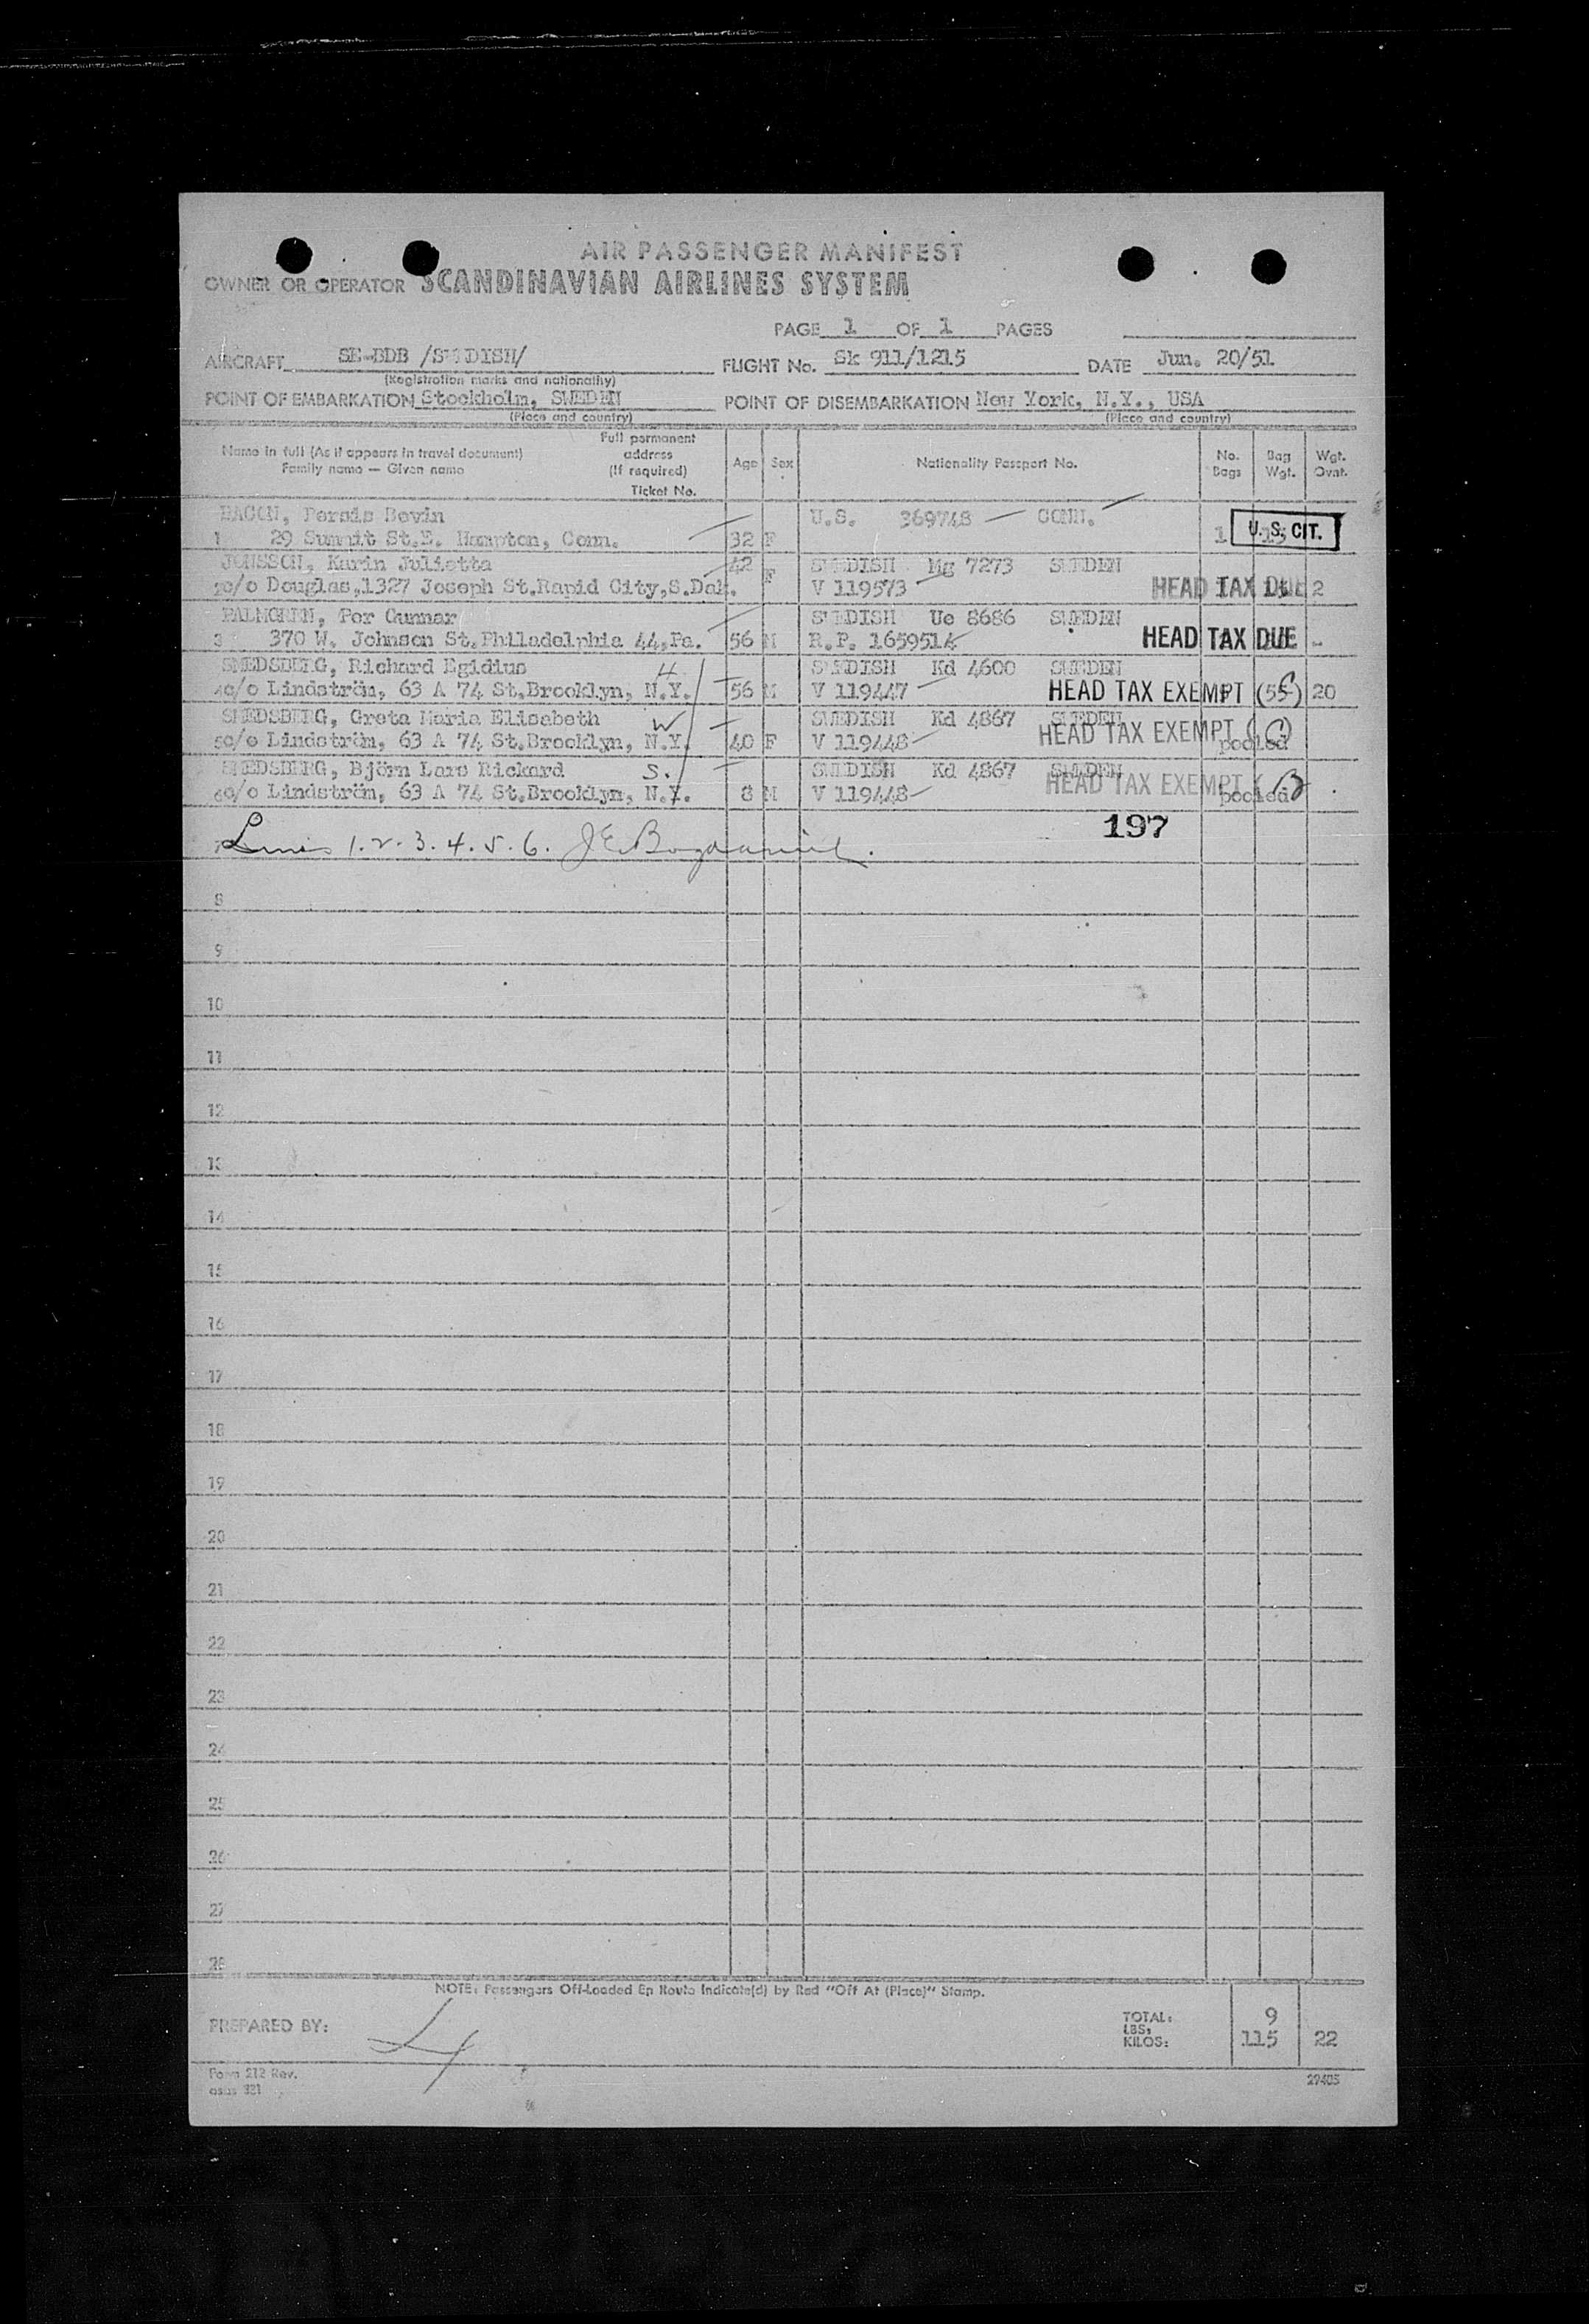 AIR PASSENGER MANIFEST
OWNER OR OPERATOR SCANDINAVIAN AIRLINES SYSTEM
PAGE 1 OF 1 PAGES
AIRCRAFT SE-BDB /SWEDISH/ FLIGHT No. Sk 911/1215 DATE Jun. 20/51
(Registration marks and nationality)
POINT OF EMBARKATION Stockholm, SWEDEN POINT OF DISEMBARKATION New York, N.Y., USA
(Place and country) (Place and country)
Name in full (As it appears in travel document) Family name — Given name Full permanent address (If required) Ticket No. Age Sex Nationality Passport No. No. Bags Bag Wgt. Wgt. Ovwt.
BACON, Persis Bevin U.S. 369748 CONN.
1 29 Summit St.E. Hampton, Conn. 32 F 1 U.S. CIT.
JONSSON, Karin Julietta 42 F SWEDISH Mg 7273 SWEDEN
2 c/o Douglas,1327 Joseph St.Rapid City,S.Dak. V 119573 HEAD TAX DUE 2
PALMGREN, Per Gunnar SWEDISH Ue 8686 SWEDEN
3 370 W. Johnson St.Philadelphia 44,Pa. 56 M R.P. 1659514 HEAD TAX DUE -
SMEDSBERG, Richard Egidius H. SWEDISH Kd 4600 SWEDEN
4 c/o Lindström, 63 A 74 St.Brooklyn, N.Y. 56 M V 119447 HEAD TAX EXEMPT (55) 20
SMEDSBERG, Greta Maria Elisabeth W SWEDISH Kd 4867 SWEDEN
5 c/o Lindström, 63 A 74 St.Brooklyn, N.Y. 40 F V 119448 HEAD TAX EXEMPT ( ) pooled
SMEDSBERG, Björn Lars Rickard S. SWEDISH Kd 4867 SWEDEN
6 c/o Lindström, 63 A 74 St.Brooklyn, N.Y. 8 M V 119448 HEAD TAX EXEMPT ( pooled
197
7 Lines 1.2.3.4.5.6. J.E.
8
9
10
11
12
13
14
15
16
17
18
19
20
21
22
23
24
25
26
27
28
NOTE: Passengers Off-Loaded En Route Indicate(d) by Red "Off At (Place)" Stamp.
PREPARED BY:
TOTAL: 9
LBS:
KILOS: 115 22
Form 212 Rev.
29405